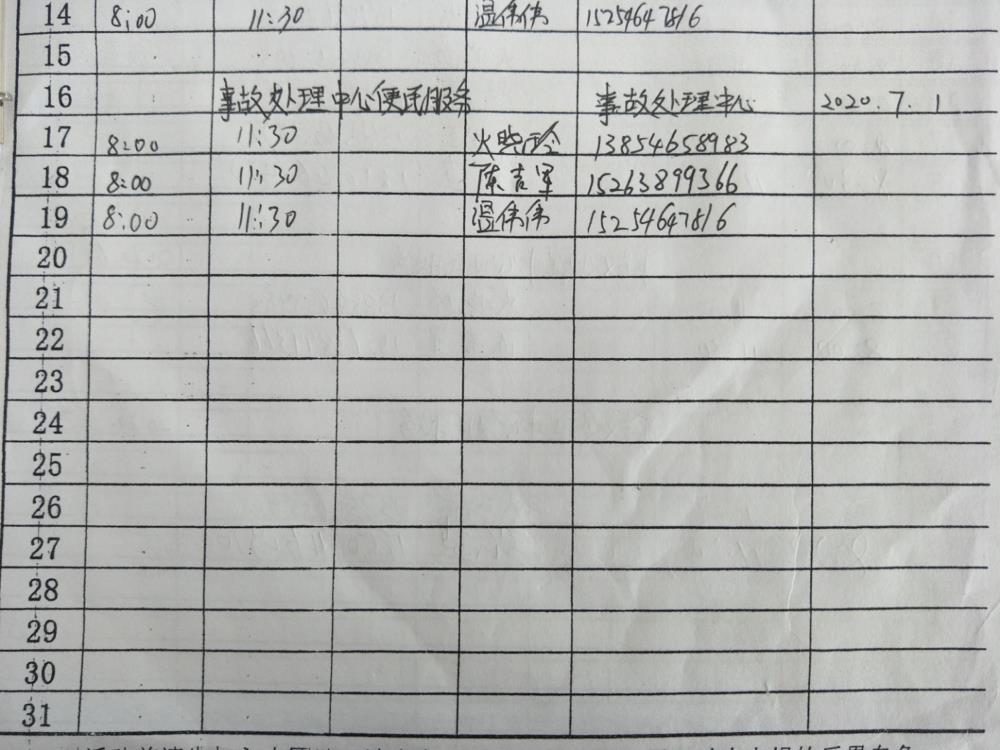 14 8:00 11:30 温伟伟 15254647816
15
16 事故处理中心便民服务 事故处理中心 2020.7.1
17 8:00 11:30 13854658983
18 8:00 11:30 陈吉军 15263899366
19 8:00 11:30 温伟伟 15254647816
20
21
22
23
24
25
26
27
28
29
30
31